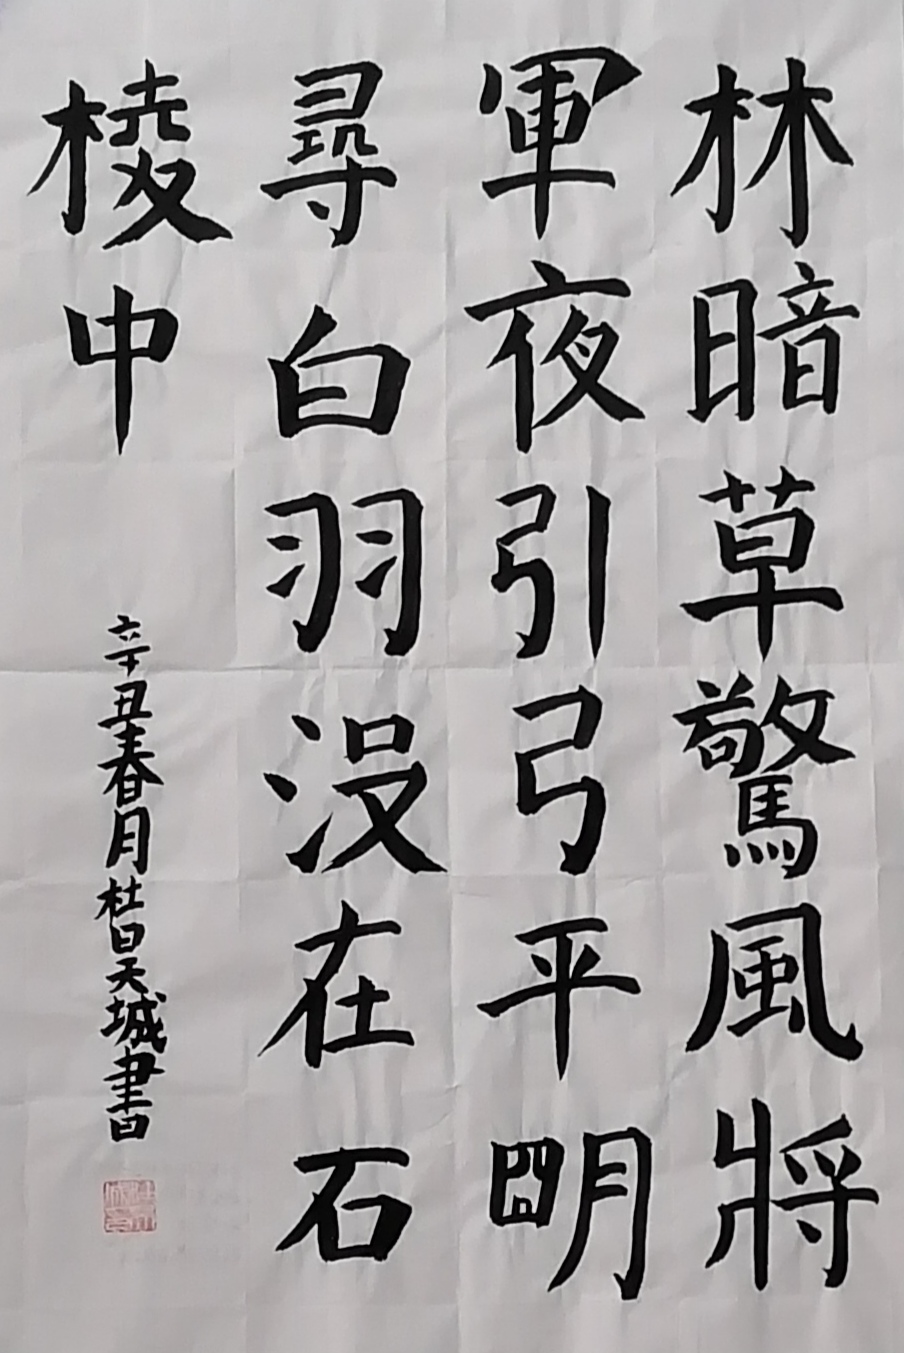 林暗草驚風將
軍夜引弓平明
尋白羽没在石
稜中
辛丑春月杜日天城書